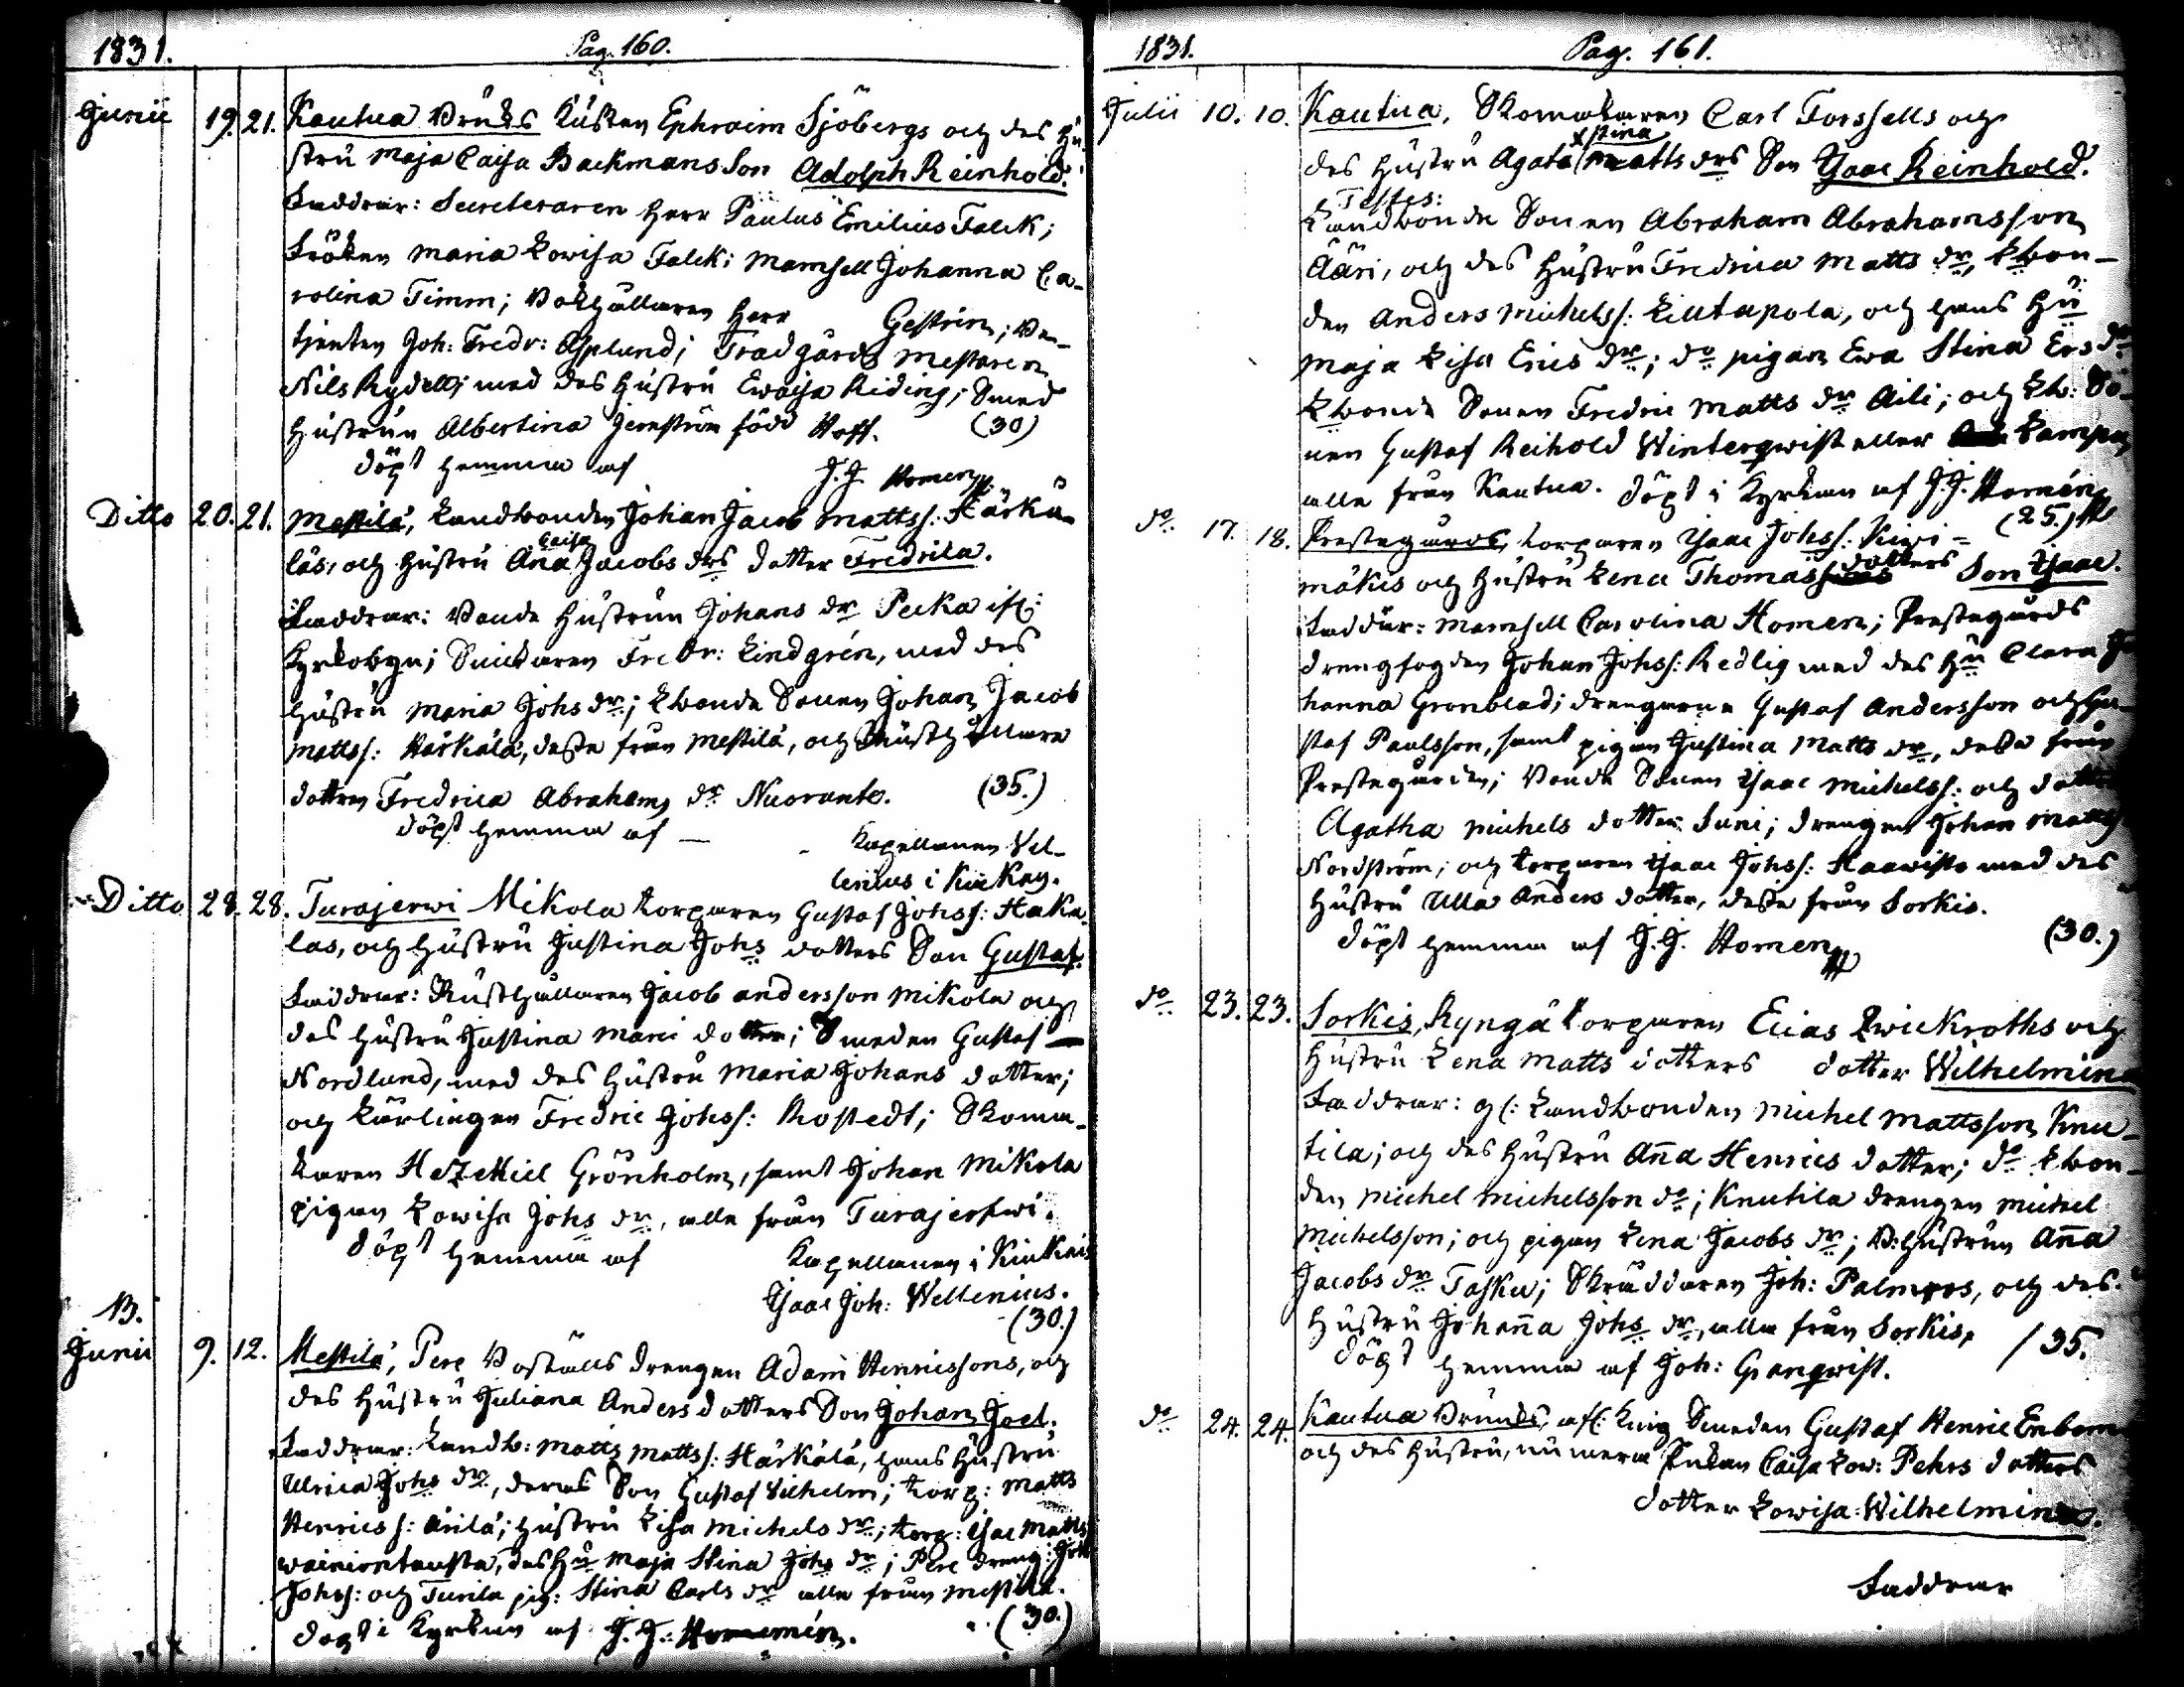 1831.
Pag. 160.
Junii 19. 21. Kautua Bruks Kusken Ephraim Sjöbergs och des Hu-
stru Maja Caisa Backmans Son Adolph Reinhold.
Faddrar: Secreteraren Herr Paulus Emilius Falck;
Fröken Maria Lowisa Falck; Mamsell Johanna Ca-
rolina Timm; Bokhållaren Herr Gestrin; Be-
tjenten Joh: Fredr: Asplund; Trädgårds Mestaren
Nils Rydell; med des Hustru Ewa Caisa Riding; Smed
Hustrun Albertina Jernström född Hoff. (30)
döpt hemma af J. J. Homén
Ditto 20. 21. Mestilä, Landbonden Johan Jacob Mattss: Härkä-
läs, och Hustru Ana Caisa Jacobs drs dotter Fredrika.
Faddrar: Bonde Hustrun Johans dr Pecka ifr:
Kyrkobyn; Snickaren Fredr: Lindgrén, med des
Hustru Maria Johs dr; Lbonde Sonen Johan Jacob
Mattss: Härkälä, desse från Mestilä, och Rusthållare
dottren Fredrica Abrahams dr Nuoranto. (35.)
döpt hemma af — Kapellanen Vel-
lenius i Kiukas.
Ditto 28. 28. Turajerwi Mikola torparen Gustaf Johss: Haka-
las, och Hustru Justina Johs dotters Son Gustaf.
Faddrar: Rusthållaren Jacob Andersson Mikola och
des Hustru Justina Marci dotter; Smeden Gustaf
Nordlund, med des Hustru Maria Johans dotter;
och Lärlingen Fredric Johss: Rostedt; Skoma-
karen Hezekiel Grönholm, samt Johan Mikola
pigan Lowisa Johs dr, alla från Turajerfwi.
döpt hemma af Kapellanen i Kiukais
Isaac Joh: Wellenius.
(30.)
B.
Junii 9. 12. Mestilä, Pere Boställs drengen Adam Henricssons, och
des Hustru Juliana Anders dotters Son Johan Joel.
Faddrar: Landb: Matts Mattss: Härkälä, hans Hustru
Ulrica Johs dr, deras Son Gustaf Vilhelm; torp: Matts
Henricss: Arilä; Hustru Lisa Michels dr; torp: Isac Matts
wainiontausta, des Hu Maja Stina Johs dr; Pere dreng: Joh
Johss: och Turila pig: Stina Carls dr alla från Mestilä.
döpt i Kyrkan af J. J. Homén. (30.)
1831.
Pag. 161.
Julii 10. 10. Kautua, Skomakaren Carl Forssells och
des Hustru Agata Stina Matts drs Son Isaac Reinhold.
Testes:
Landbonde Sonen Abraham Abrahamsson
Ääri, och des Hustru Fredrica Matts dr, Lbon-
den Anders Michelss: Liutapola, och hans Hu
Maja Lisa Erics dr; do pigan Ewa Stina Ers dr
Lbonde Sonen Fredric Matts dr Aili; och Lb: So-
nen Gustaf Reihold Winterqwist eller Lampa
alla från Kautua. döpt i Kyrkan af J. J. Homén
(25.)
do 17. 18. Prestegårds, torparen Isaac Johss: Kiwi-
mäkis och Hustru Lena Thomas dotters Son Isaac.
Faddrar: Mamsell Carolina Homen; Prestegårds
drengfogden Johan Johss: Redlig med des Hu Clara Jo
hanna Grönblad; drengarne Gustaf Andersson och Gu-
staf Paulsson, samt pigan Justina Matts dr, desse från
Prestegården; Bonde Sonen Isaac Michelss: och dottren
Agatha Michels dotter Juni; drengen Johan Matts
Nordström; och torparen Isaac Johss: Haawisto med des
Hustru Ulla Anders dotter, desse från Sorkis.
döpt hemma af J. J. Homen (30.)
do 23. 23. Sorkis, Ryngä torparen Elias Qwickroths och
Hustru Lena Matts dotters dotter Wilhelmina
Faddrar: gl: Landbonden Michel Mattsson Knu-
tila; och des Hustru Anna Henrics dotter; do Lbon-
den Michel Michelsson do; Knutila drengen Michel
Michelsson; och pigan Lena Jacobs dr; B: hustrun Anna
Jacobs dr Tasku; Skräddaren Joh: Palmroos, och des
Hustru Johanna Johs dr, alla från Sorkis. / 35.
döpt hemma af Joh: Granqwist.
do 24. 24. Kautua Bruks, afl: Knip Smeden Gustaf Henric Enbom
och des Hustru, numera Enkan Caisa Low: Pehrs dotters
dotter Lowisa Wilhelmina.
Faddrar